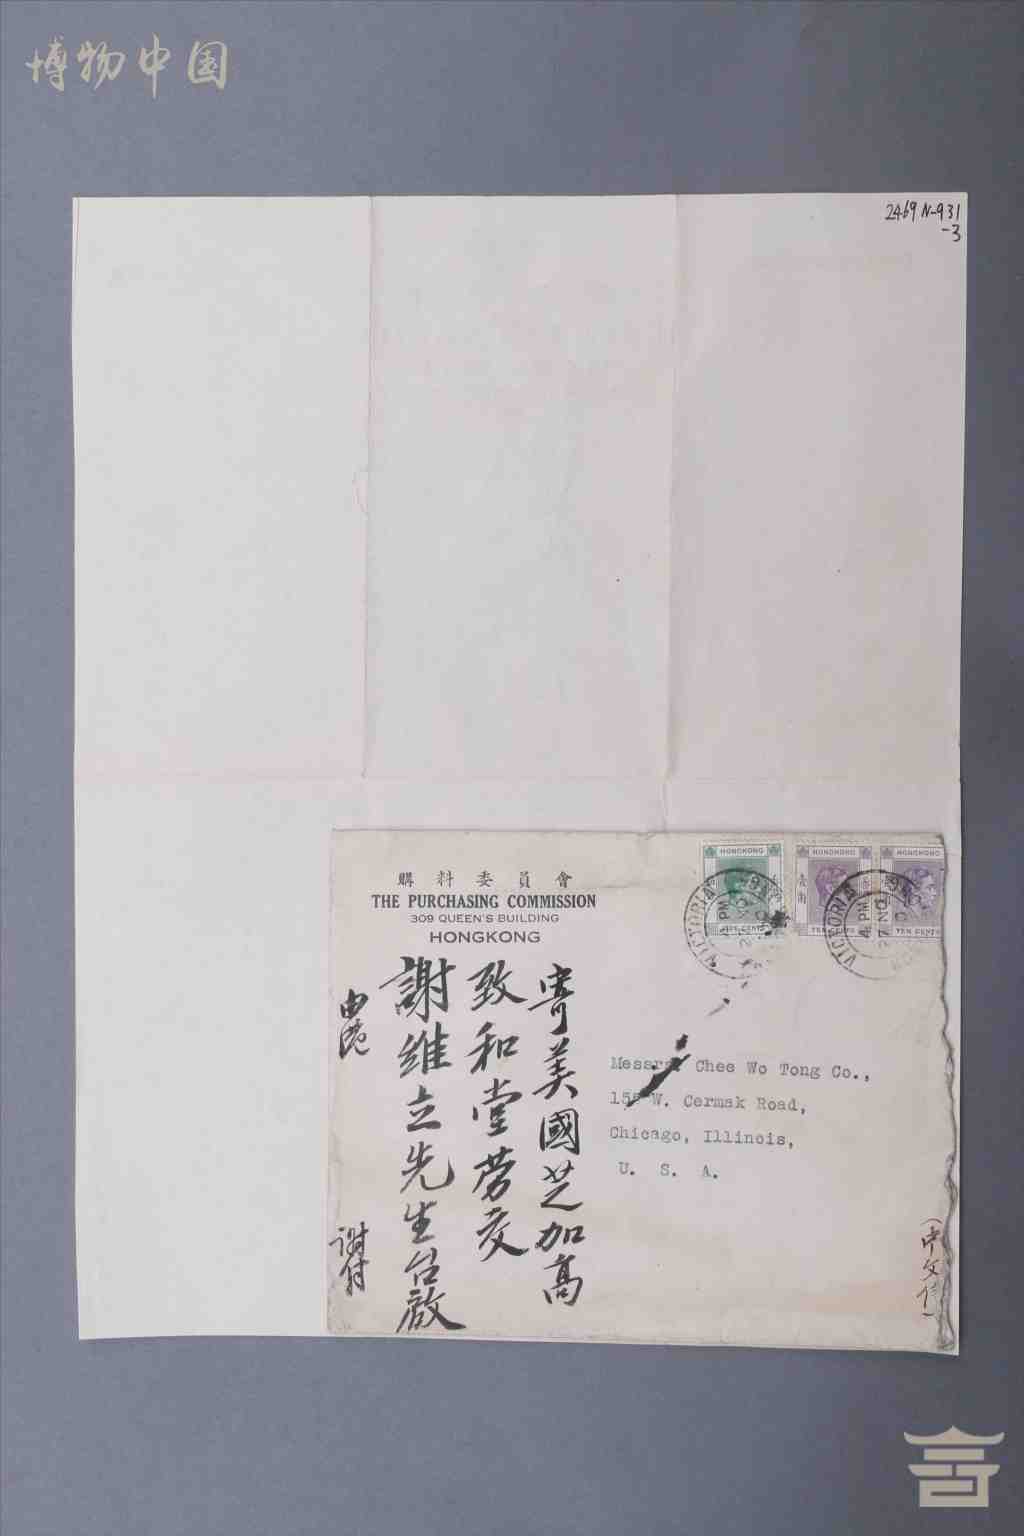 博物中国
2469 N-931
-3
購料委員會
THE PURCHASING COMMISSION
309 QUEEN'S BUILDING
HONGKONG
HONGKONG
FIVE CENTS
HONGKONG
TEN CENTS
HONGKONG
TEN CENTS
VICTORIA
4 PM
VICTORIA
4 PM
27 NO
寄美國芝加高
致和堂勞交
謝維立先生台啟
由港
謝付
Messrs. Chee Wo Tong Co.,
155 W. Cermak Road,
Chicago, Illinois,
U. S. A.
(中文信)